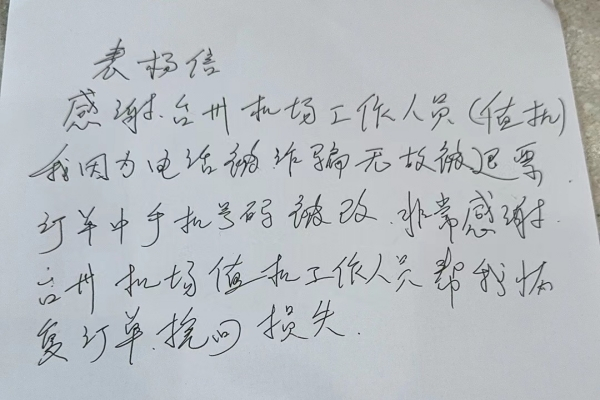 表杨信
感谢台州机场工作人员(值机)
我因为电话被诈骗无故被退票.
订单中手机号码被改.非常感谢.
台州机场值机工作人员帮我恢
复订单.挽回损失.